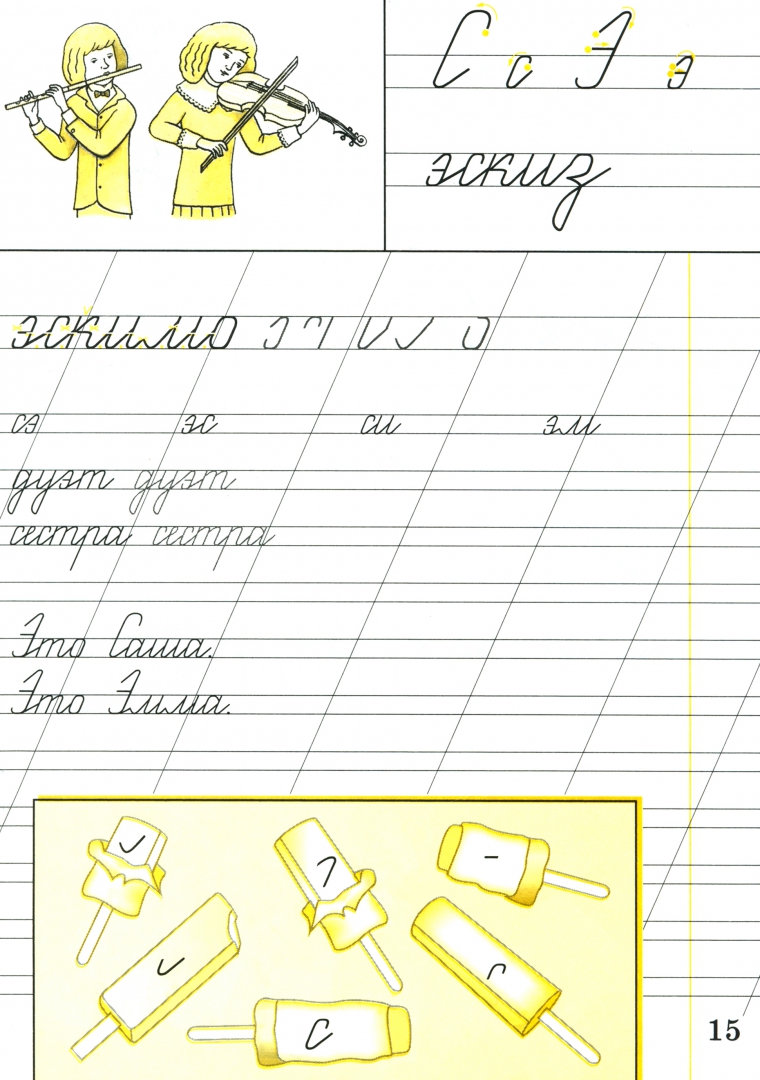 С с Э э
эскиз
эскимо
сэ эс си эм
дуэт дуэт
сестра сестра
Это Саша.
Это Эмма.
С
15